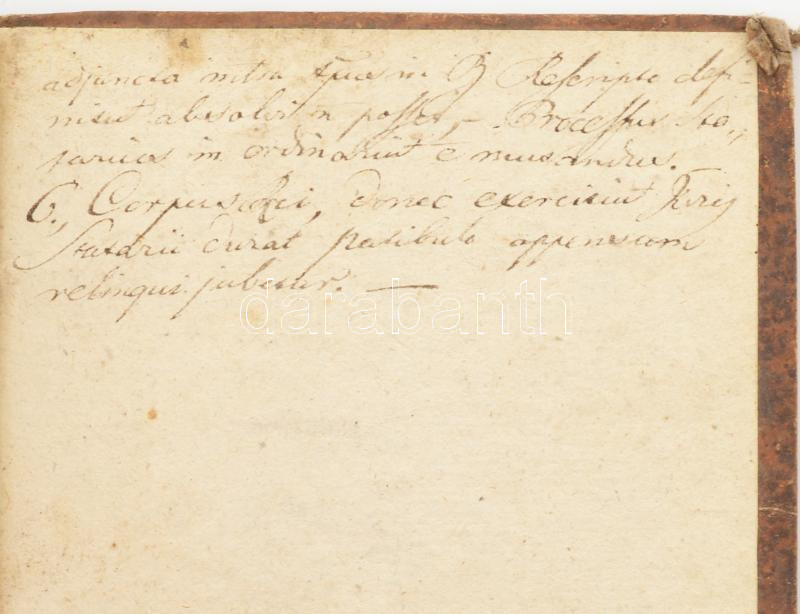 adjuncta intra quos in B Rescripto defi-
niut absolvi n posset, – Processus Sta„
tarius in ordinariut e mutandus.
6., Corpus Rei, donec exercitiut Juris
Statarii durat patibulo appensum
relinqui jubetur. —
darabanth